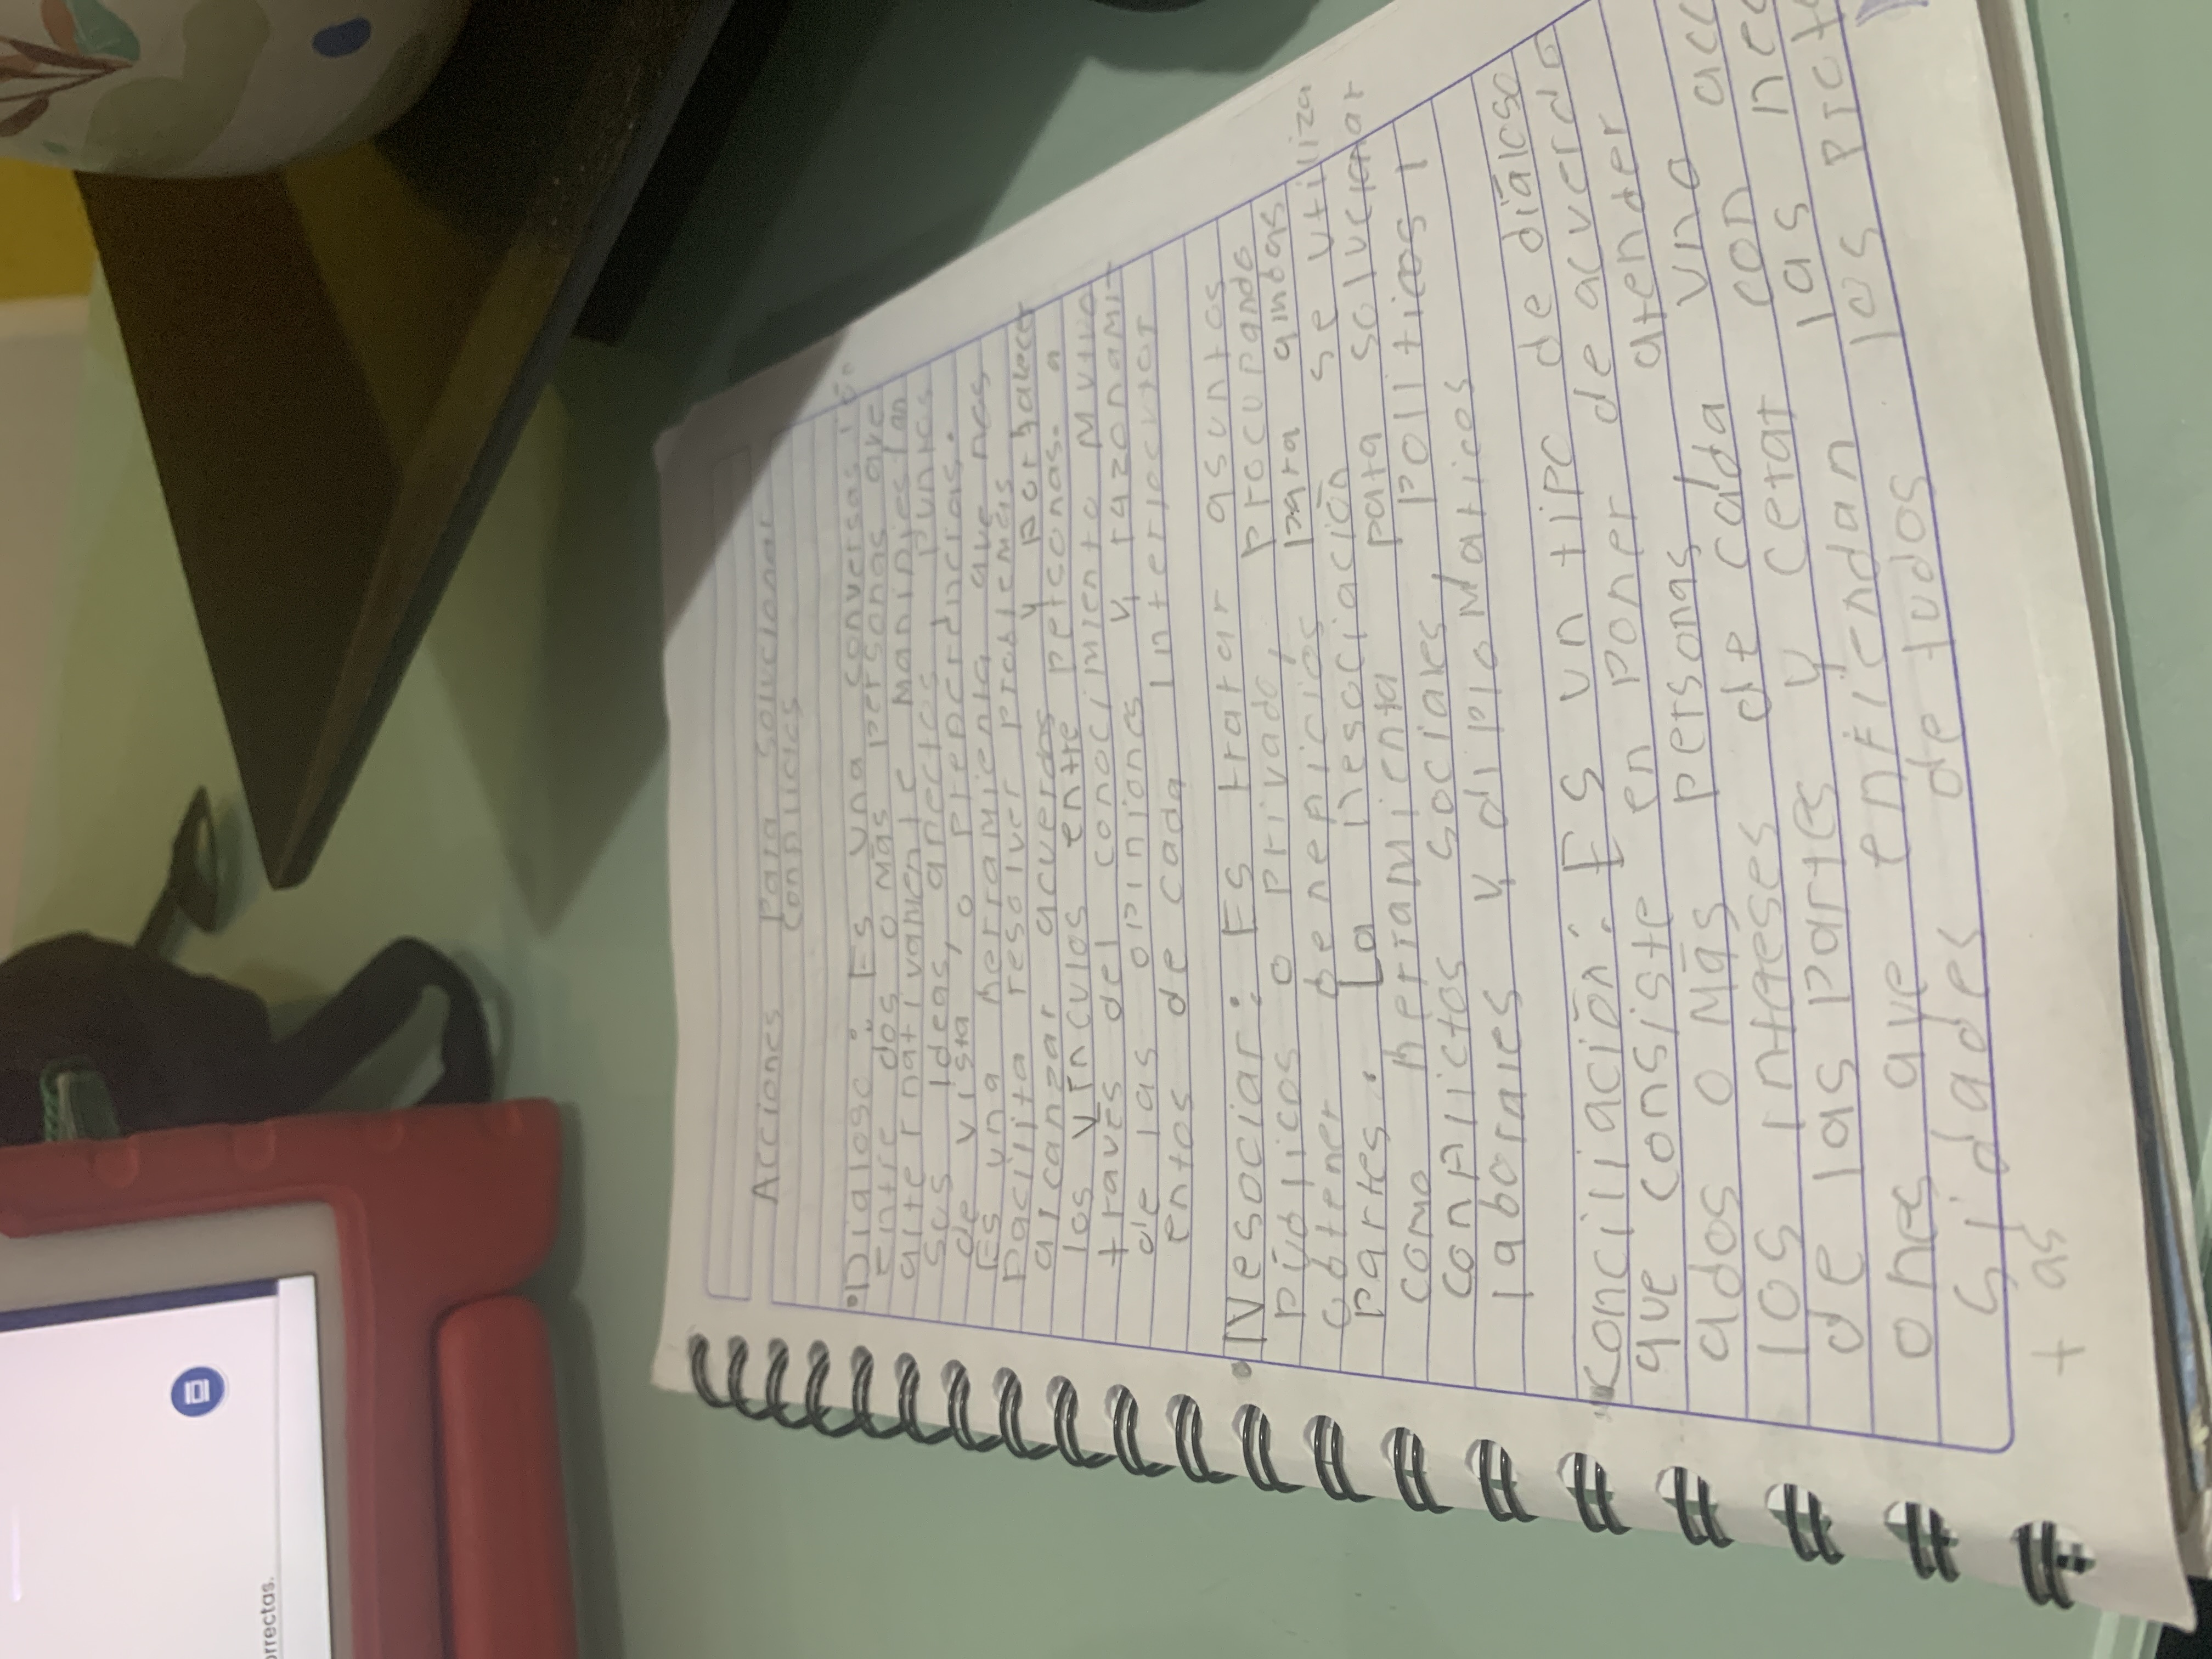 Acciones para solucionar
conflictos
• Dialogo: Es una conversasión
Entre dos o más personas que
alternativamente manifiestan
sus ideas, afectos, puntos
de vista, o preocurdincias.
Es una herramienta que nos
facilita resolver problemas
alcanzar acuerdos y fortalecer
los vínculos entre personas. a
través del conocimiento mutuo
de las opiniones y razonami-
entos de cada interlocutor
• Negociar: Es tratar asuntos
públicos o privado, procurando
obtener beneficios para ambas
partes. La negociación se utiliza
como herramienta para solucionar
conflictos sociales políticos
laborales y diplomaticos
conciliación: Es un tipo de diálogo
que consiste en poner de acuerdo
a dos o más personas atender
los intereses de cada una
de las partes y cerar con
ones que entiendan las
sidades de todos los
+ as
orrectas.